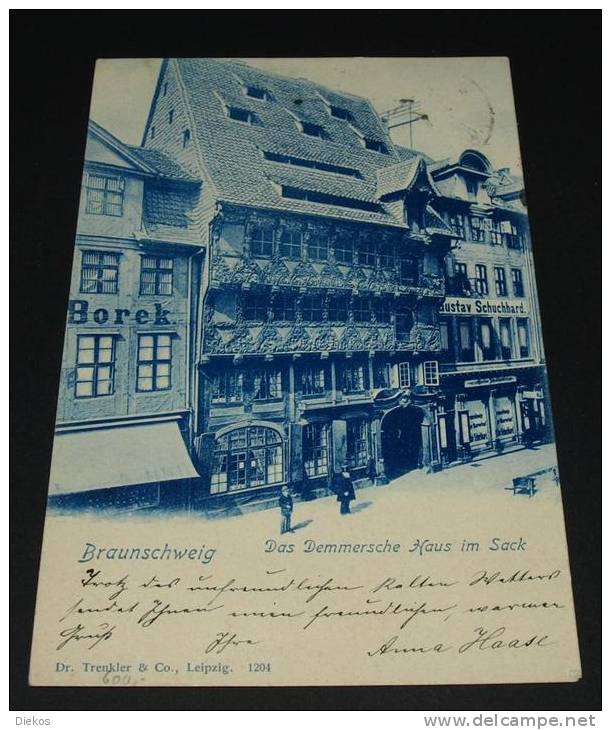 Borek
Gustav Schuchhard.
Braunschweig
Das Demmersche Haus im Sack
Trotz des unfreundlichen kalten Wetters
sendet Ihnen einen freundlichen, warmen
Gruß Ihre
Anna Haase
Dr. Trenkler & Co., Leipzig. 1204
600,-
Diekos
www.delcampe.net